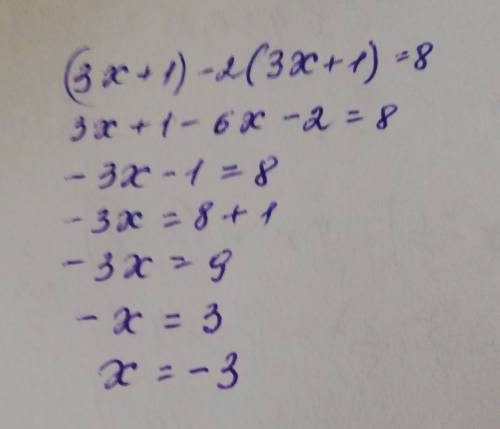 (3x+1)-2(3x+1)=8
3x+1-6x-2=8
-3x-1=8
-3x=8+1
-3x=9
-x=3
x=-3